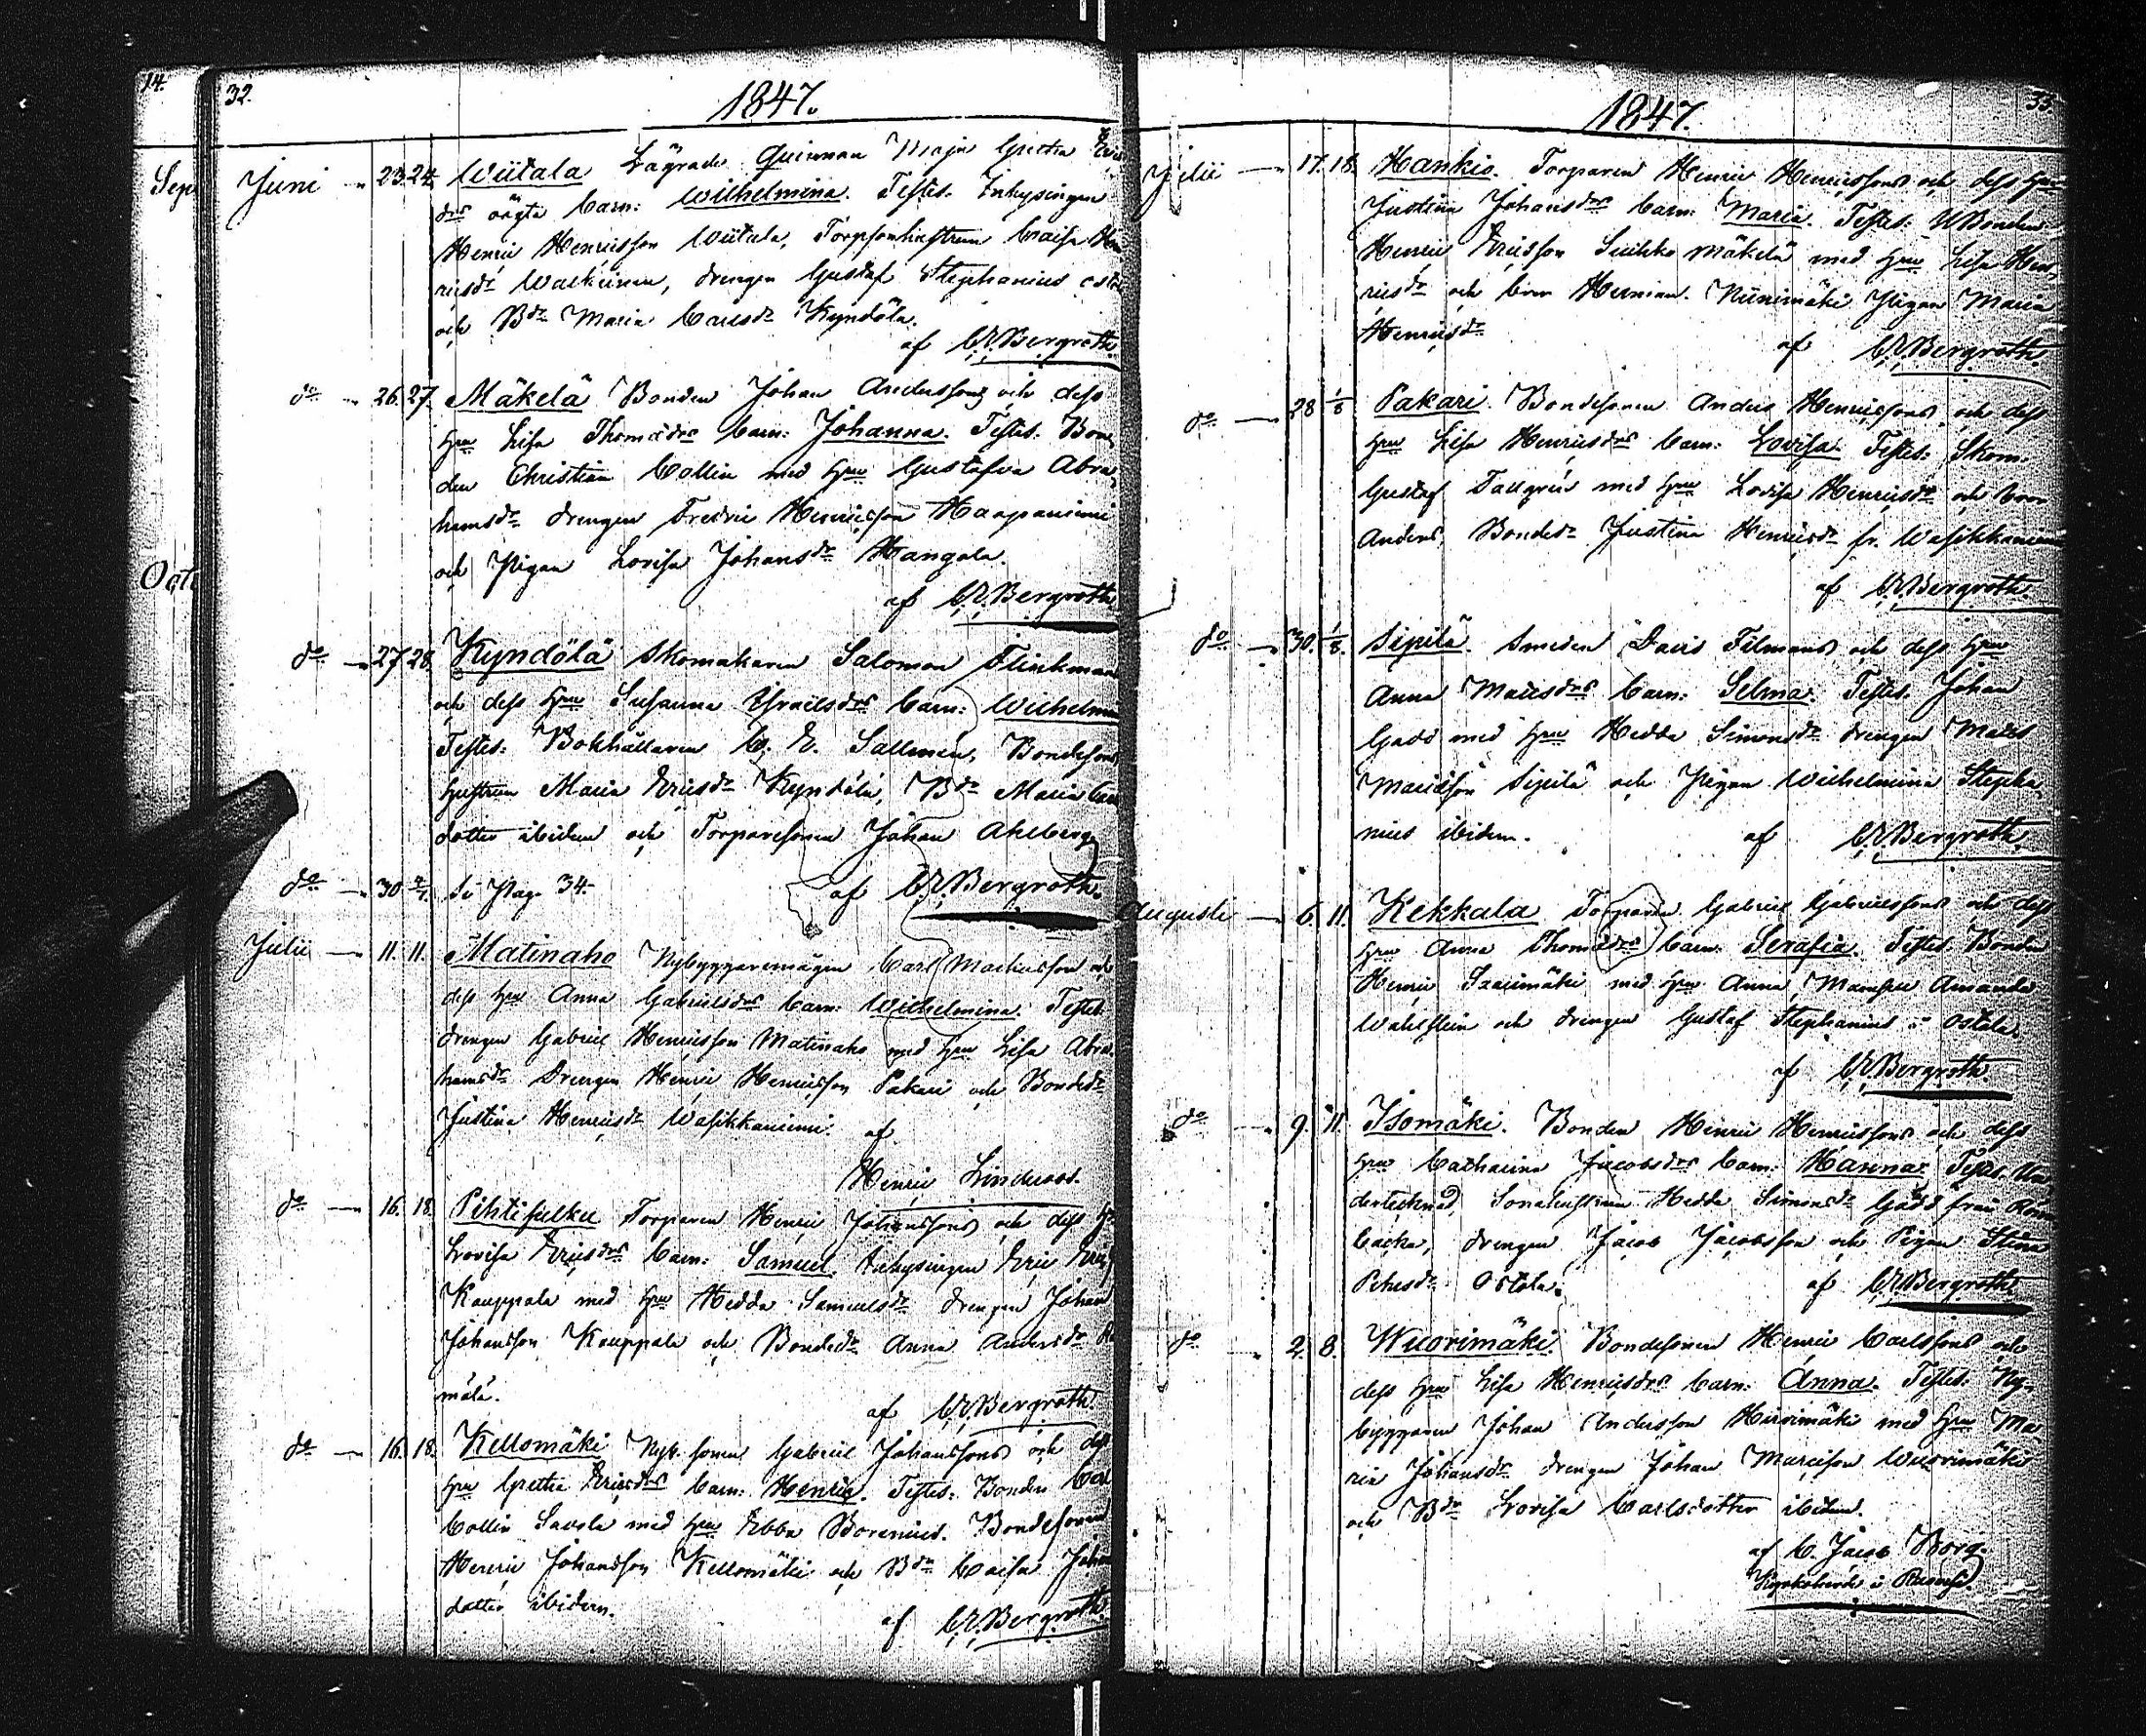 14.
Sep
Octo
32.
1847.
Juni 23. 24. Wiitala Lägrade Quinnan Maja Greta
drs oägta barn: Wilhelmina. Testes. Inhysingen
Henric Henricsson Wiitala, Torpsonhustrun Caisa Hen
ricsdr drengen Gustaf Stephanius
och Bdr Maria Carlsdr Kyndölä.
af C.R. Bergroth.
do 26. 27. Mäkelä Bonden Johan Anderssons och dess
hru Lisa Thomædrs barn: Johanna. Testes. Bon
den Christian Collin med hru Gustafva Abra
hamsdr drengen Fredric Henricsson Haapaniemi
och Pigan Lovisa Johansdr Kangola.
af C.R. Bergroth
do 27. 28. Kyndölä Skomakaren Salomon Flinkman
och dess hru Susanna Israelsdrs barn: Wilhelmin
Testes. Bokhållaren C. E. Sallmén, Bondesons
hustrun Maria Ericsdr Kyndölä, Bdr Maria Carls
dotter ibidem och Torparesonen Johan Ahlberg
af C.R. Bergroth.
do 30. 4/7. Se Pag. 34.
Julii 11. 11. Matinaho Nybyggaremågen Carl Mathisson och
dess hru Anna Gabrielsdrs barn: Wilhelmina. Testes.
drengen Gabriel Henricsson Matinaho med hru Lisa Abra
hamsdr Drengen Henric Henricsson Pakari och Bondedr
Justina Henricsdr Wasikkaniemi. af
Henric Lindroos.
do 16. 18. Pihtisulku Torparen Henric Johanssons och dess hru
Lovisa Ericsdrs barn: Samuel. Inhysingen Eric Erics
Kauppala med hru Hedda Samuelsdr drengen Johan
Johansson Kauppala och Bondedr Anna Andersdr
mälä.
af C.R. Bergroth.
do 16. 18. Kellomäki Nyb. sonen Gabriel Johanssons och dess
hru Greta Ericsdrs barn: Henric. Testes. Bonden Carl
Collin Savola med hru Ebba Borenius. Bondesonen
Henric Johansson Kellomäki och Bdr Caisa Johans
dotter ibidem.
af C.R. Bergroth.
33.
1847.
Julii 17. 18. Hankio. Torparen Henric Henricssons och dess hru
Justina Johansdrs barn: Maria. Testes: UBonden
Henric Ericsson Suikko Mäkelä med hru Lisa Hen
ricsdr och bror Herman. Niinimäki Pigan Maria
Henricsdr
af C.R. Bergroth.
do 28 1/8 Pakari. Bondesonen Anders Henricssons och dess
hru Lisa Henricsdrs barn: Lovisa. Testes: Skom.
Gustaf Tallgrén med hru Lovisa Henricsdr och bror
Anders, Bondedr Justina Henricsdr fr. Wasikkaniemi
af C.R. Bergroth.
do 30. 1/8. Sipilä. Smeden David Filmans och dess hru
Anna Matsdrs barn: Selma. Testes. Johan
Gadd med hru Hedda Simonsdr drengen Mats
Matsson Sipilä och Pigan Wilhelmina Stepha
nius ibidem.
af C.R. Bergroth.
Augusti 6. 11. Kekkala. Torparen Gabriel Gabrielssons och dess
hru Anna Thomædrs barn: Serafia. Testes. Bonden
Henric Saarimäki med hru Anna, Mamsell Amanda
Wahlstein och drengen Gustaf Stephanius i Ostola.
af C.R. Bergroth.
do 9. 11. Isomäki. Bonden Henric Henricssons och dess
hru Catharina Jacobsdrs barn: Hanna. Testes. Un
dertecknad, Sonahustrun Hedda Simonsdr Gadd från
backa, drengen Jacob Jacobsson och Pigan Stina
Petersdr Ostola.
af C.R. Bergroth.
do 2. 8. Wuorimäki. Bondesonen Henric Carlssons och
dess hru Lisa Henricsdrs barn: Anna. Testes. Ny
byggaren Johan Andersson Hirvimäki med hru Ma
ria Johansdr drengen Johan Matsson Wuorimäki
och Bdr Lovisa Carlsdotter ibidem.
af C. Jacob Borg.
Kyrkoherde i